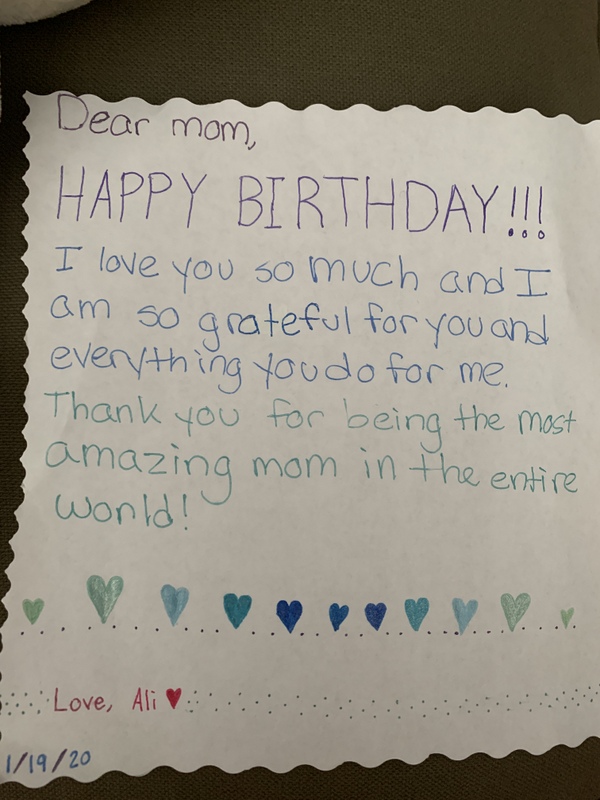 Dear mom,
HAPPY BIRTHDAY!!!
I love you so much and I
am so grateful for you and
everything you do for me.
Thank you for being the most
amazing mom in the entire
world!
Love, Ali ♥
1/19/20